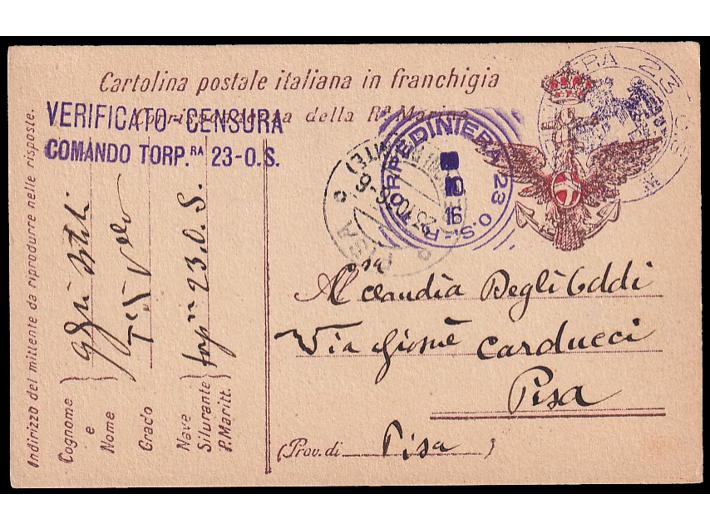 Cartolina postale italiana in franchigia
Corrispondenza della Rª Marina
VERIFICATO CENSURA
COMANDO TORP.RA 23-O.S.
TORPEDINIERA 23 O.S.-R
10
16
PISA
Indirizzo del mittente da riprodurre nelle risposte.
Cognome e Nome
Grado
Nave Silurante P. Maritt.
torp.ra 23.O.S.
Al Claudia Degli Oddi
Via Giosuè Carducci
Pisa
(Prov. di Pisa)